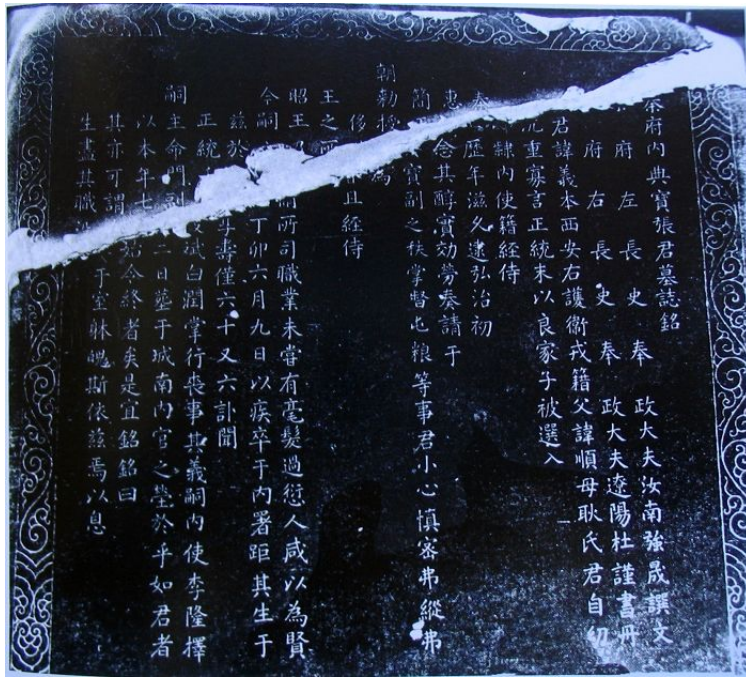 秦府内典寶張君墓誌銘
府左長史奉政大夫汝南強晟譔文
府右長史奉政大夫遼陽杜謹書丹
君諱義本西安右護衛戎籍父諱順母耿氏君自幼
重寡言正統末以良家子被選入
隸内使籍經侍
歷年滋久逮弘治初
惠念其醇實効勞奏請于
簡寶副之秩掌督屯粮等事君小心慎密弗縱弗
朝勑授為
後且經侍
王之
昭王所司職業未嘗有毫髮過愆人咸以為賢
令嗣丁卯六月九日以疾卒于内署距其生于
正統壽僅六十又六訃聞
兹於
嗣主命門副斌白潤掌行喪事其義嗣内使李隆擇
以本年七二日塟于城南内官之塋於乎如君者
其亦可謂始令終者矣是宜銘銘曰
生盡其職于室躰魄斯依兹焉以息